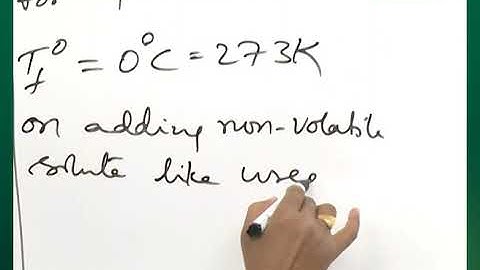 T_f^0 = 0°C = 273K
on adding non-volatile
solute like